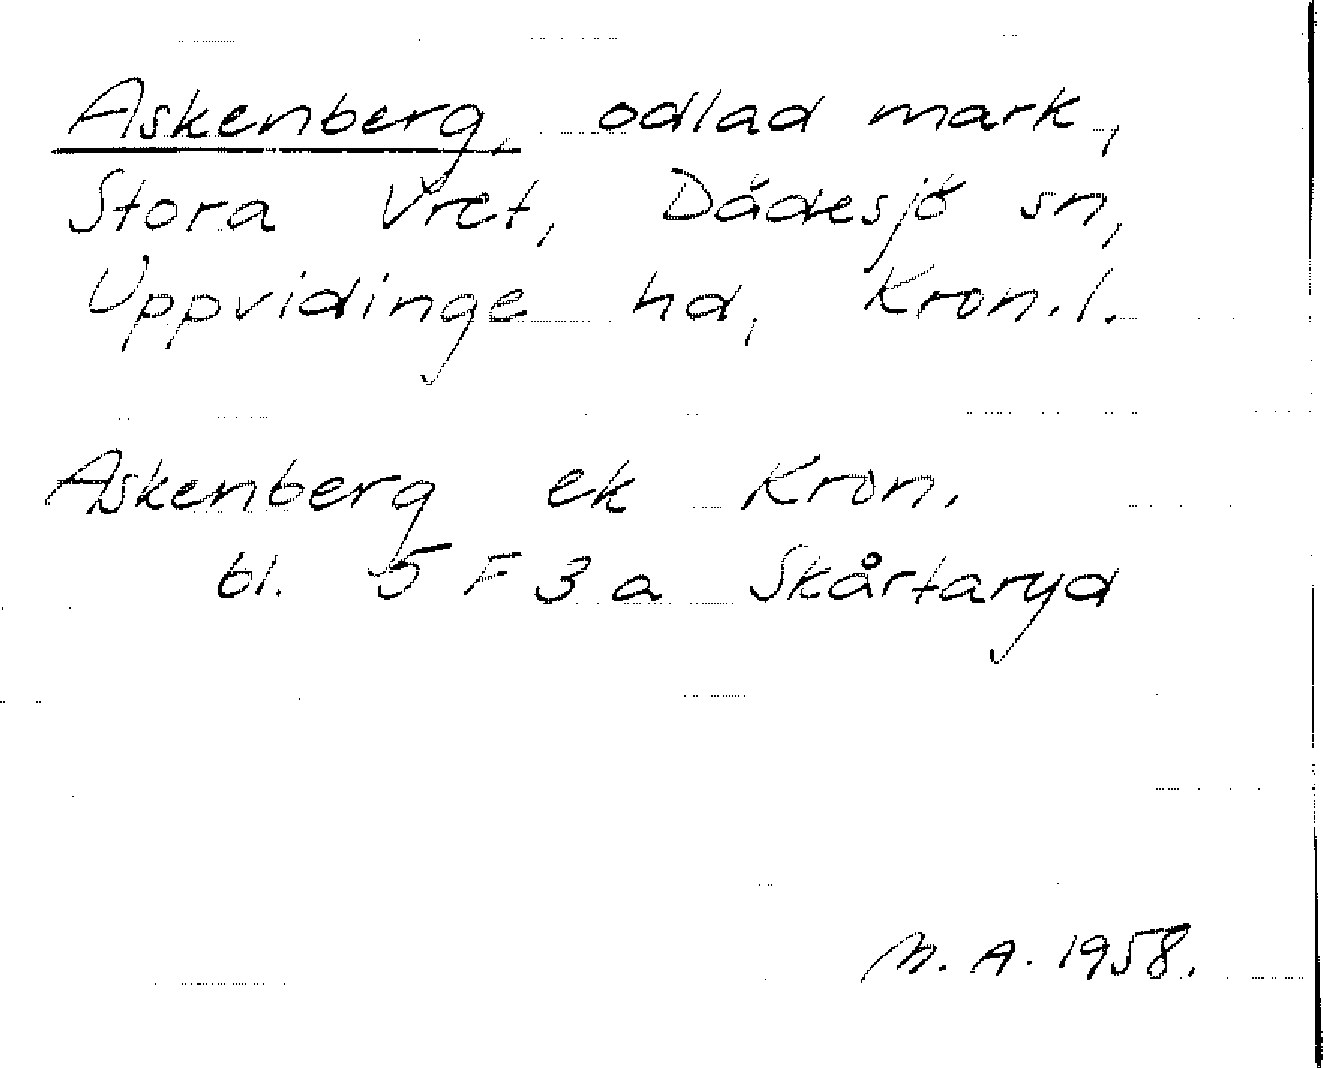 Askenberg, odlad mark,
Stora Vret, Dädesjö sn,
Uppvidinge hd, Kron.l.
Askenberg ek Kron.
bl. 5 F 3 a Skårtaryd
M. A. 1958.